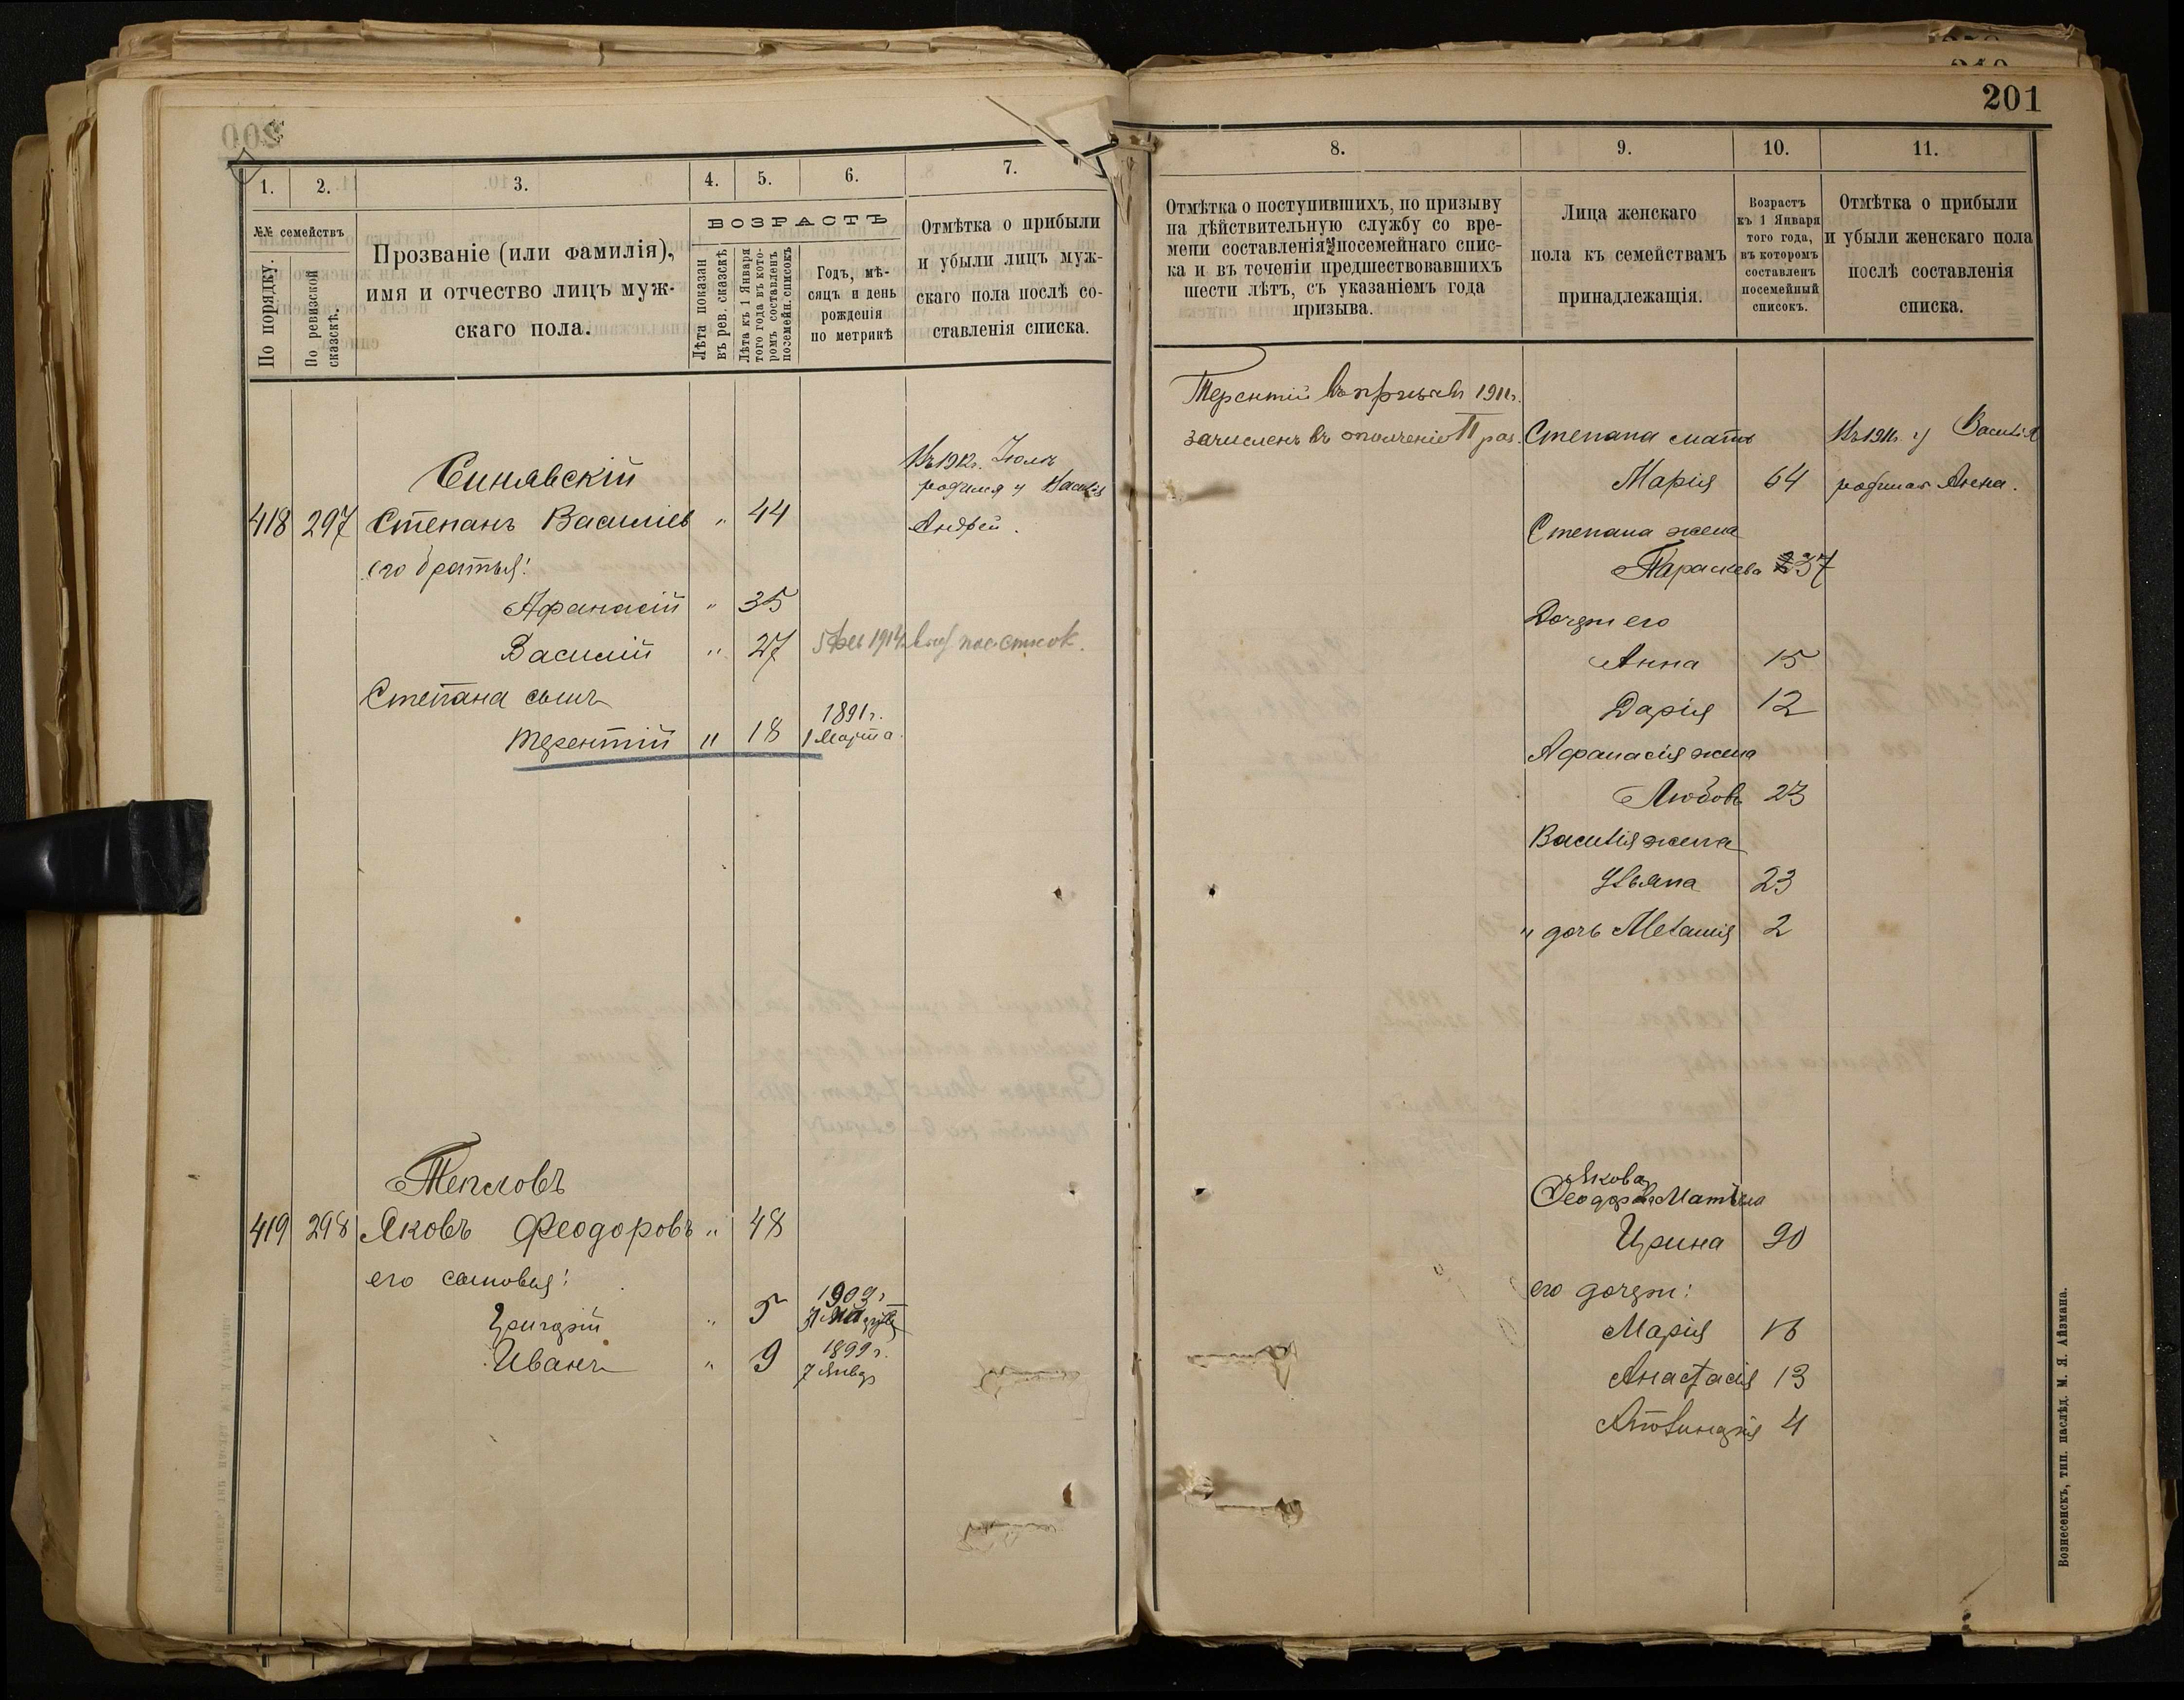 201
1.
2.
3.
4.
5.
6.
7.
№№ семействъ
По порядку.
По ревизской сказскѣ.
Прозваніе (или фамилія),
имя и отчество лицъ муж-
скаго пола.
ВОЗРАСТЪ
Лѣта показан
въ рев. сказскѣ
Лѣта къ 1 Января
того года въ кото-
ромъ составленъ
посемейн. списокъ
Годъ, мѣ-
сяцъ и день
рожденія
по метрикѣ
Отмѣтка о прибыли
и убыли лицъ муж-
скаго пола послѣ со-
ставленія списка.
Синявскій
418 297 Степанъ Василіев " 44
его братья:
Афанасій " 35
Василій " 27
Степана сынъ
Терентій " 18 1891 г.
1 Марта
Въ 1912 г. Іюля
родился у Василія
Андрей.
Тепловъ
419 298 Яковъ Феодоровъ " 48
его сыновья:
Григорій " 5 1903 г.
Иванъ " 9 1899 г.
7 Январ
8.
9.
10.
11.
Отмѣтка о поступившихъ, по призыву
на дѣйствительную службу со вре-
мени составленія посемейнаго спис-
ка и въ теченіи предшествовавшихъ
шести лѣтъ, съ указаніемъ года
призыва.
Лица женскаго
пола къ семействамъ
принадлежащія.
Возрастъ
къ 1 Января
того года,
въ которомъ
составленъ
посемейный
списокъ.
Отмѣтка о прибыли
и убыли женскаго пола
послѣ составленія
списка.
Терентій въ призывъ 1912 г.
зачисленъ въ ополченіе II раз.
Степана мать
Марія 64
Въ 1911 г. у Василія
родилась Анна.
Степана жена
Параскева 37
Дочери его
Анна 15
Дарія 12
Афанасія жена
Любовь 23
Василія жена
Ульяна 23
" дочь Меланія 2
Якова
Ирина 90
его дочери:
Марія 16
Анастасія 13
4
Вознесенскъ, тип. наслѣд. М. Я. Айзмана.